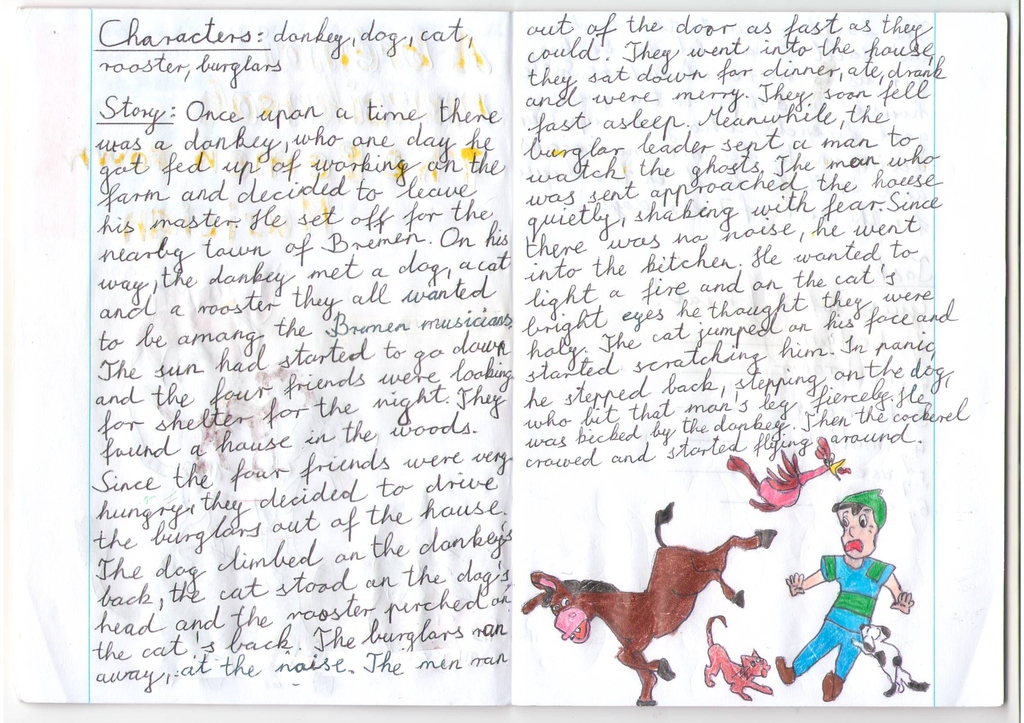 Characters: donkey, dog, cat,
rooster, burglars
Story: Once upon a time there
was a donkey, who one day he
got fed up of working on the
farm and decided to leave
his master. He set off for the
nearby town of Bremen. On his
way, the donkey met a dog, a cat
and a rooster they all wanted
to be among the Bremen musicians.
The sun had started to go down
and the four friends were looking
for shelter for the night. They
found a house in the woods.
Since the four friends were very
hungry, they decided to drive
the burglars out of the house.
The dog climbed on the donkey's
back, the cat stood on the dog's
head and the rooster perched on
the cat's back. The burglars ran
away, at the noise. The men ran
out of the door as fast as they
could. They went into the house,
they sat down for dinner, ate, drank
and were merry. They soon fell
fast asleep. Meanwhile, the
burglar leader sent a man to
watch the ghosts. The man who
was sent approached the house
quietly, shaking with fear. Since
there was no noise, he went
into the kitchen. He wanted to
light a fire and on the cat's
bright eyes he thought they were
holy. The cat jumped on his face and
started scratching him. In panic,
he stepped back, stepping on the dog,
who bit that man's leg fiercely. He
was kicked by the donkey. Then the cockerel
crowed and started flying around.